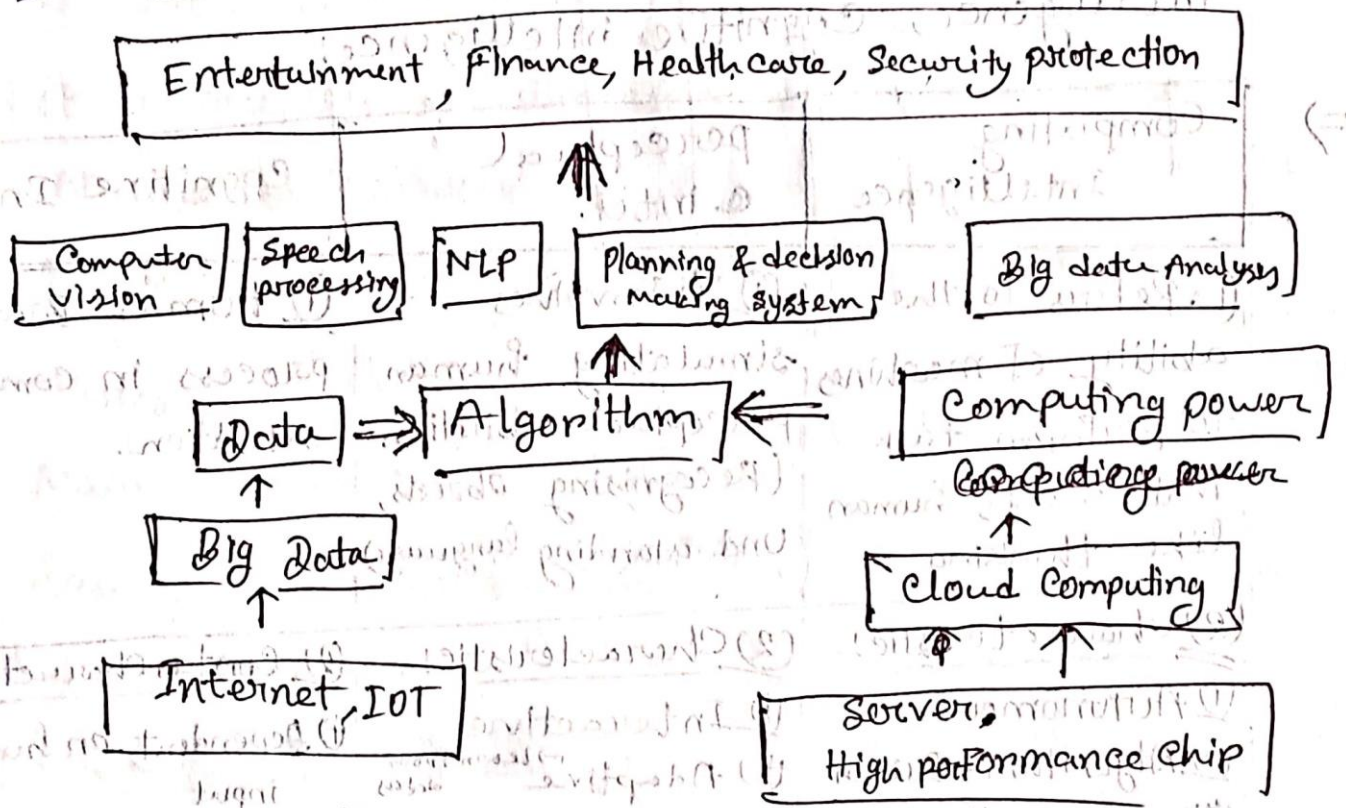 Entertainment, Finance, Healthcare, Security protection
Computer
vision
Speech
processing
NLP
planning & decision
making system
Big data Analyses
Data
Algorithm
Computing power
Computing power
Big Data
Cloud Computing
Internet, IOT
Server,
High performance chip